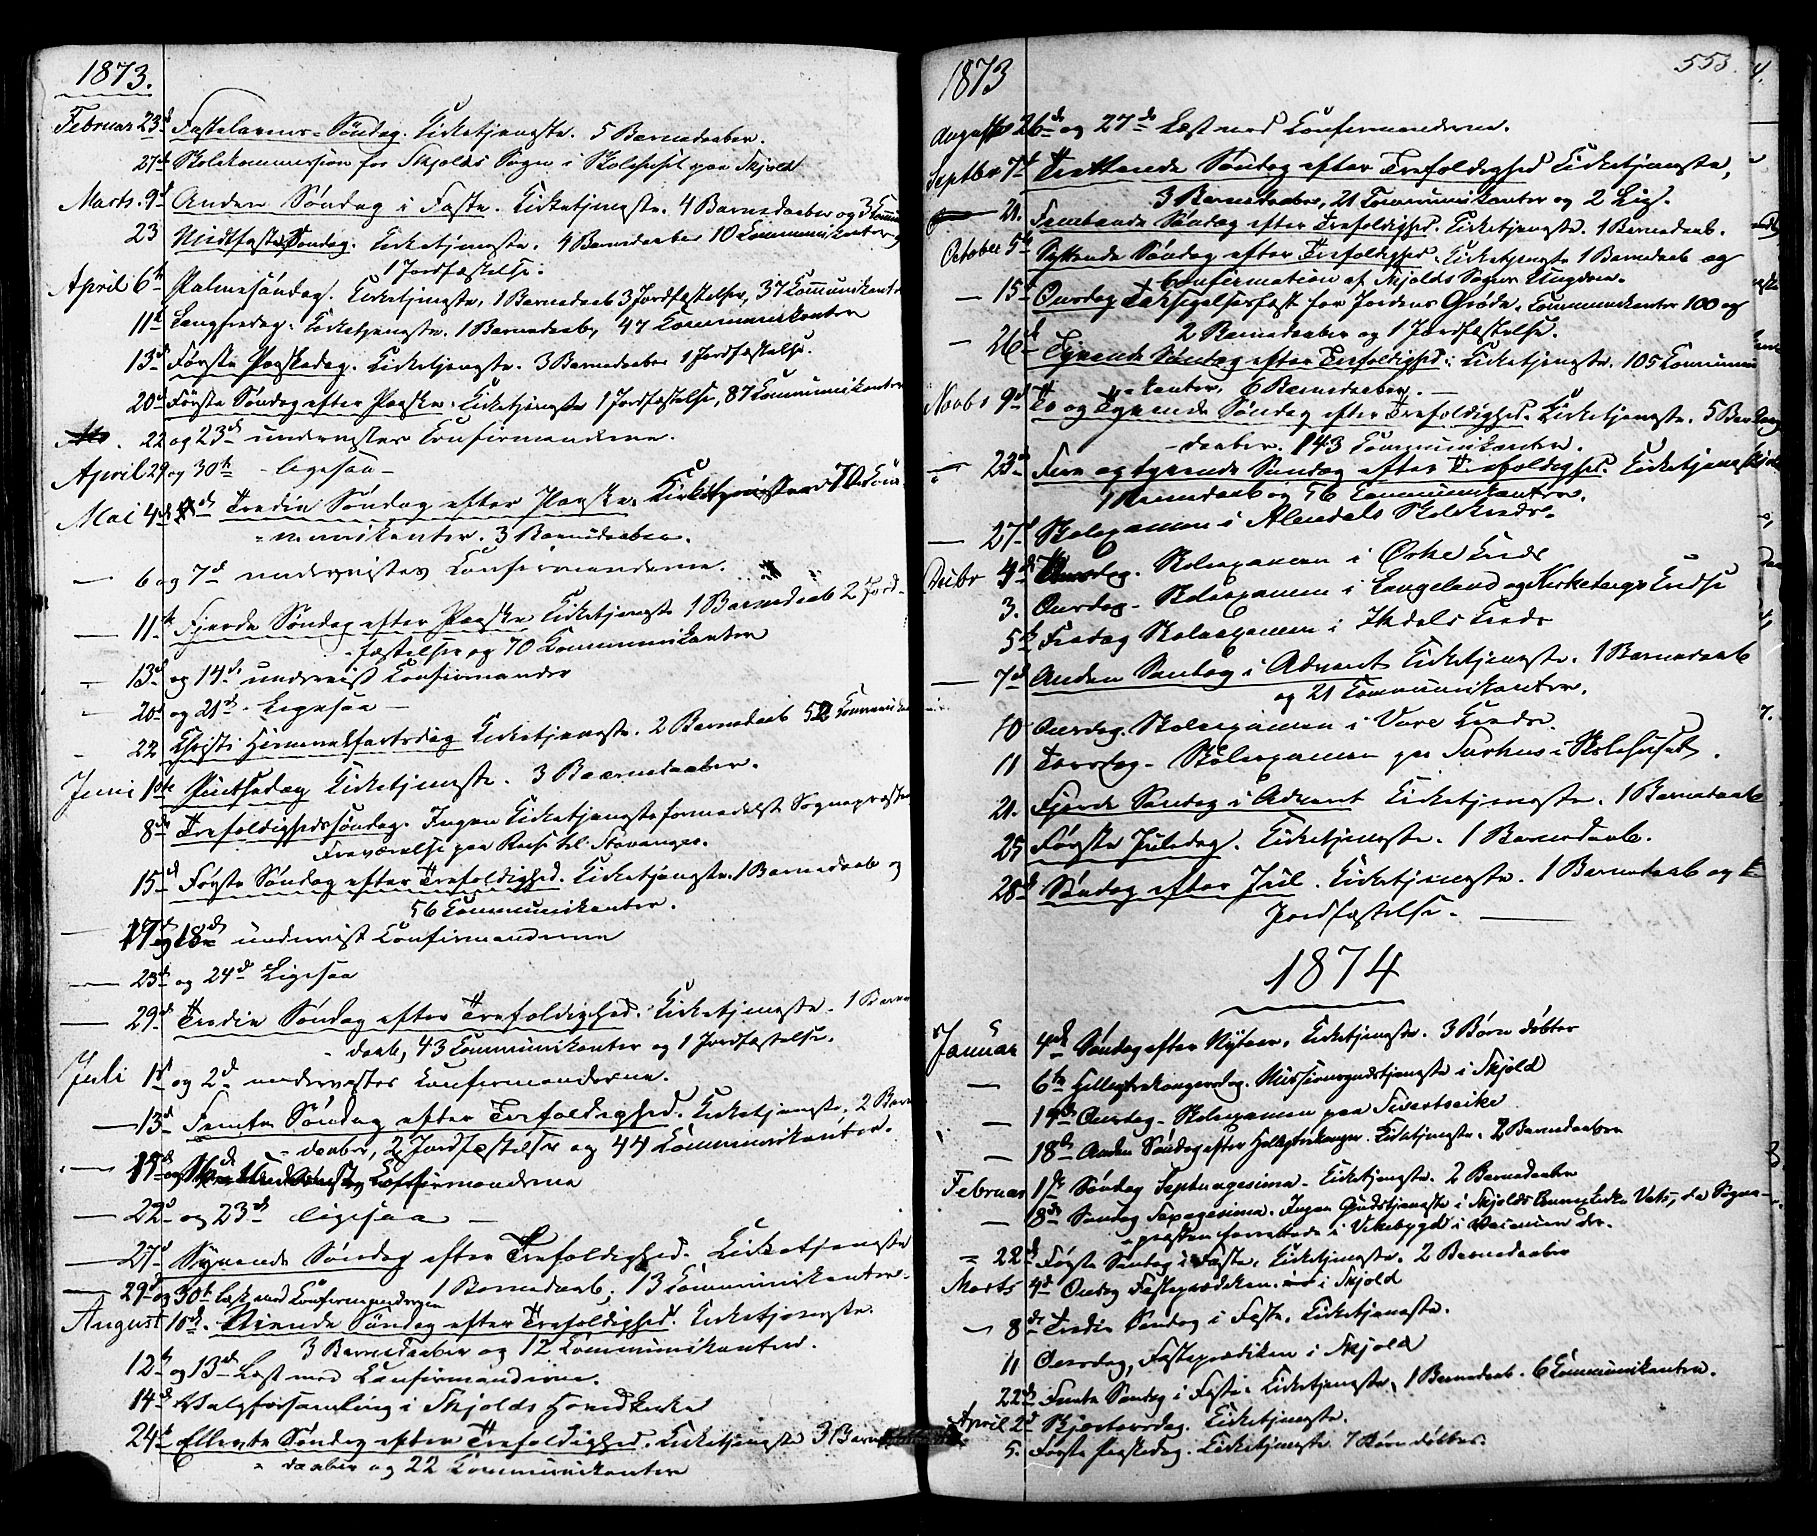 1873.
Februar 23d Fastelavens-Søndag. Kirketjeneste. 5 Barnedaaber.
27d Skolekommission for Skjolds Sogn i Skolehuset paa Skjold
Marts. 9d Anden Søndag i Faste. Kirketjeneste. 4 Barnedaaber og 3 Kommu
23 Midtfaste Søndag. Kirketjeneste. 4 Barnedaaber 10 Kommunikanter og
1 Jordfæstelse.
April 6te Palmesøndag. Kirketjeneste, 1 Barnedaab 3 Jordfæstelser, 37 Kommunikanter
11te Langfredag. Kirketjeneste. 1 Barnedaab, 47 Kommunikanter
13d Første Paaskedag. Kirketjeneste. 3 Barnedaaber 1 Jordfæstelse.
20d Første Søndag efter Paaske. Kirketjeneste 1 Jordfæstelse, 87 Kommunikanter
22 og 23d undervistes Konfirmanderne.
April 29 og 30te ligesaa
Mai 4d Tredie Søndag efter Paaske. Kirketjeneste 70 Kom-
munikanter. 3 Barnedaaber.
— 6 og 7d undervistes Confirmanderne.
— 11te Fjerde Søndag efter Paaske Kirketjeneste 1 Barnedaab 2 Jord-
fæstelser og 70 Kommunikanter
— 13d og 14d undervist Confirmander
20d og 21d Ligesaa —
22 Christi Himmelfartsdag Kirketjeneste. 2 Barnedaab 52 Kommunik
Juni 1ste Pintsedag Kirketjeneste. 3 Barnedaaber.
8de Trefoldighedssøndag. Ingen Kirketjeneste formedelst Sognepræstens
Fraværelse paa Reise til Stavanger.
15d Første Søndag efter Trefoldighed. Kirketjeneste. 1 Barnedaab og
56 Kommunikanter.
— 17d og 18de undervist Confirmanderne
— 23d og 24d Ligesaa
— 29d Tredie Søndag efter Trefoldighed. Kirketjeneste. 1 Barne
daab, 43 Kommunikanter og 1 Jordfæstelse.
Juli 1st og 2d undervistes Confirmanderne.
— 13d Femte Søndag efter Trefoldighed. Kirketjeneste, 2 Barne
daaber, 2 Jordfæstelser og 44 Kommunikanter.
— 15d og 16d Confirmanderne
— 22d og 23d ligesaa —
— 27d Syvende Søndag efter Trefoldighed. Kirketjeneste
1 Barnedaab, 13 Kommunikanter.
— 29d og 30te Læst med Confirmanderne
August 10d. Niende Søndag efter Trefoldighed. Kirketjeneste.
3 Barnedaaber og 12 Kommunikanter.
12te og 13de Læst med Confirmanderne.
14d Valgforsamling i Skjolds Hovedkirke
24d Ellevte Søndag efter Trefoldighed. Kirketjeneste 3 Barne
daaber og 22 Kommunikanter
1873
553.
August 26de og 27de Læst med Confirmanderne.
Septbr 7d Trettende Søndag efter Trefoldighed Kirketjeneste,
3 Barnedaaber, 21 Kommunikanter og 2 Lig.
21. Femtende Søndag efter Trefoldighed. Kirketjeneste. 1 Barnedaab.
October 5te Syttende Søndag efter Trefoldighed. Kirketjeneste 1 Barnedaab og
Confirmation af Skjolds Sogns Ungdom.
— 15d Onsdag Taksigelsesfest for Jordens Grøde. Communikanter 100 og
2 Barnedaaber og 1 Jordfæstelse.
— 26d Tyvende Søndag efter Trefoldighed. Kirketjeneste. 105 Kommuni
kanter, 6 Barnedaaber.
Novbr 9d To og Tyvende Søndag efter Trefoldighed. Kirketjeneste. 5 Barne
daaber. 143 Communikanter.
23d Fire og tyvende Søndag efter Trefoldighed. Kirketjeneste
1 Barnedaab og 56 Communikanter.
— 27d Skolexamen i Alendals Skolekreds.
Decbr Skolexamen i Øvre Kreds
3. Onsdag. Skolexamen i Langeland og Kirkebergs Kredse
5te Fredag Skolexamen i Kreds
— 7d Anden Søndag i Advent Kirketjeneste. 1 Barnedaab
og 21 Communikanter.
10 Onsdag. Skolexamen i Vore Kreds.
11 Torsdag. Skolexamen paa i Skolehuset.
21. Fjerde Søndag i Advent Kirketjeneste. 1 Barnedaab
25 Første Juledag. Kirketjeneste. 1 Barnedaab.
28d Søndag efter Jul. Kirketjeneste. 1 Barnedaab og 1
Jordfæstelse. —
1874
Januar 4de Søndag efter Nytaar. Kirketjeneste. 3 Børn døbte
— 6te Helligtrekongersdag. Missionsgudstjeneste i Skjold
— Onsdag. Skolexamen paa
— 18de Anden Søndag efter Helligtrekonger. Kirketjeneste. 2 Barnedaaber
Februar 1ste Søndag Septuagesima. Kirketjeneste. 2 Barnedaaber
— 8de Søndag Sexagesima. Ingen Gudstjeneste i Skjolds Annexkirke Vats, da Sogne-
præsten forrettede i Vikebygd i Vacancen der.
22de Første Søndag i Faste, Kirketjeneste. 2 Barnedaaber
Marts 4d Onsdag Fasteprædiken i Skjold
— 8de Tredie Søndag i Faste, Kirketjeneste.
11 Onsdag, Fasteprædiken i Skjold
22de Femte Søndag i Faste. Kirketjeneste, 1 Barnedaab. 6 Communikanter.
April 2d Skjærtorsdag. Kirketjeneste.
5. Første Paaskedag. Kirketjeneste. 7 Børn døbtes.